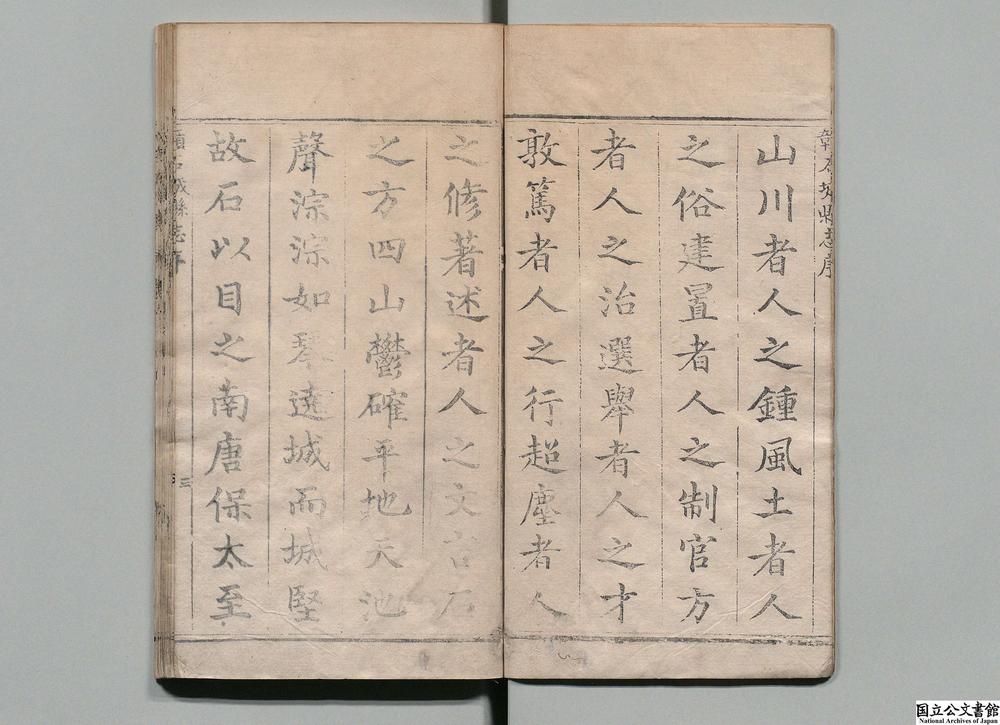 山川者人之鍾風土者人
之俗建置者人之制官方
者人之治選舉者人之才
敦篤者人之行超塵者人
之修著述者人之文古石
之方四山鬱確平地天池
聲淙淙如琴遶城而城堅
故石以目之南唐保太至
縣志序
三
国立公文書館
National Archives of Japan